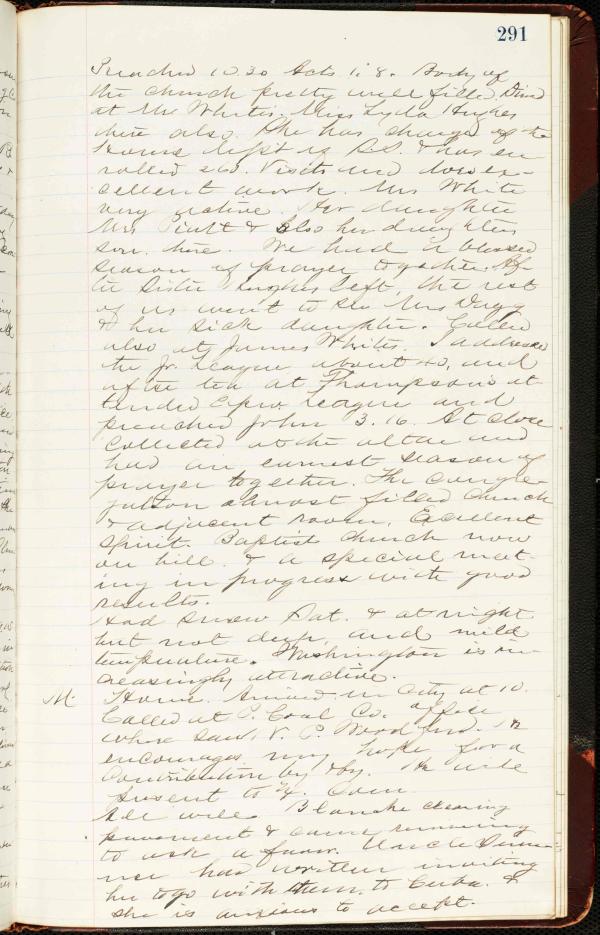 291
Preached 10.30 Acts 1:8. Body of
the church pretty well filled. Dined
at Mr White's. Miss Lyda Hughes
here also. She has charge of the
Home Dept of S.S. & has en
rolled 260. Visits and does ex-
cellent work. Mrs White
very active. Her daughter
Mrs Piatt & also her daughters
son, here. We had a blessed
season of prayer together. Af
ter Sister Hughes left, the rest
of us went to see Mrs Dagg
& her sick daughter. Called
also at James Whites. I addressed
the Jr. League, about 40, and
after tea at Thompson's at
tended Epw League and
preached John 3.16. At close
collected at the altar and
had an earnest season of
prayer together. The congre-
gation almost filled church
& adjacent room. Excellent
spirit. Baptist church now
on hill. & a special meet-
ing in progress with good
results.
Had snow Sat. & at night
but not deep, and mild
temperature. Washington is in-
creasingly attractive.
M. Home. Arrived in City at 10.
Called at P. Coal Co. office
where saw V. P. Wood and. He
encourages my hope for a
Contribution by & by. He will
present to Ex. Com.
All well. Blanche cleaning
pavement & came running
to ask a favor. Uncle
had written inviting
her to go with them, to Cuba. &
she is anxious to accept.